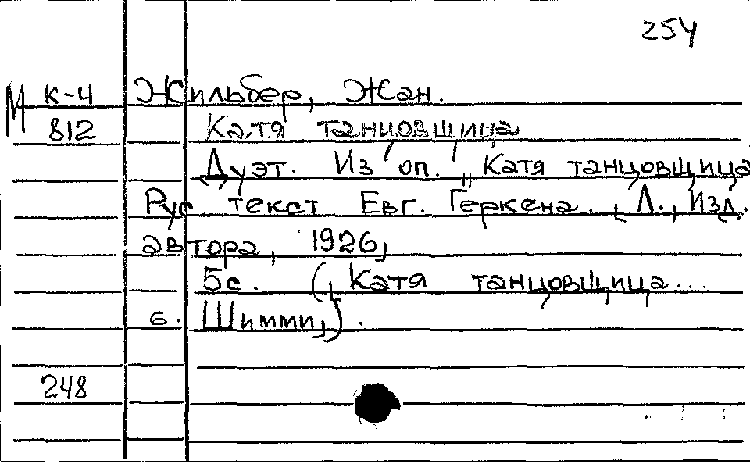 254
М к-4 Жильбер, Жан.
812 Катя танцовщица
Дуэт. Из оп. „Катя танцовщица
Рус текст Евг. Геркена. Л., Изд.
автора, 1926,
5с. („Катя танцовщица...
Шимми„).
248